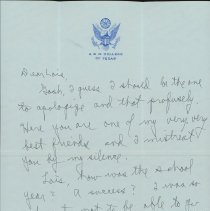 A. & M. COLLEGE
OF TEXAS
Dear Lois,
Gosh, I guess I should be the one
to apologize and that profusely.
Here you are one of my very, very
best friends and I mistreat
you by my silence.
Lois, how was the school
year? A success? I was so
not to be able to